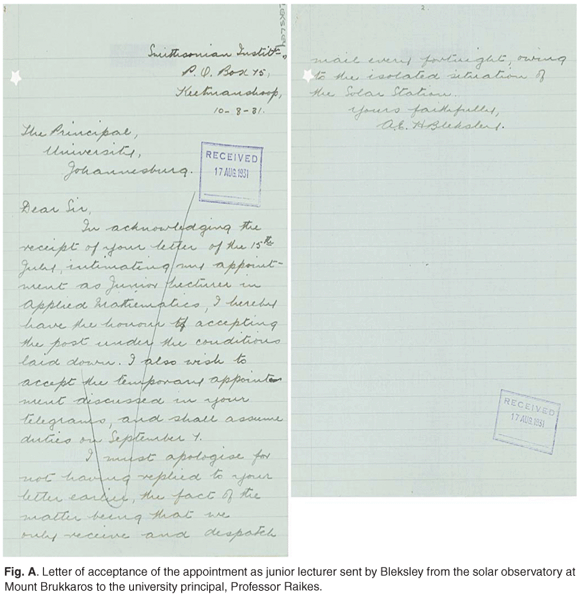 Smithsonian Instit-,
P.O. Box 75,
Keetmanshoop,
10-8-31.
The Principal,
University,
Johannesburg.
RECEIVED
17 AUG. 1931
Dear Sir,
In acknowledging the
receipt of your letter of the 15th
July, intimating my appoint-
ment as Junior Lecturer in
Applied Mathematics, I hereby
have the honour of accepting
the post under the conditions
laid down. I also wish to
accept the temporary appoint-
ment discussed in your
telegrams, and shall assume
duties on September 1.
I must apologise for
not having replied to your
letter earlier, the fact of the
matter being that we
only receive and despatch
2.
mail every fortnight, owing
to the isolated situation of
the Solar Station.
Yours faithfully,
A.E. H. Bleksley.
RECEIVED
17 AUG. 1931
Fig. A. Letter of acceptance of the appointment as junior lecturer sent by Bleksley from the solar observatory at
Mount Brukkaros to the university principal, Professor Raikes.